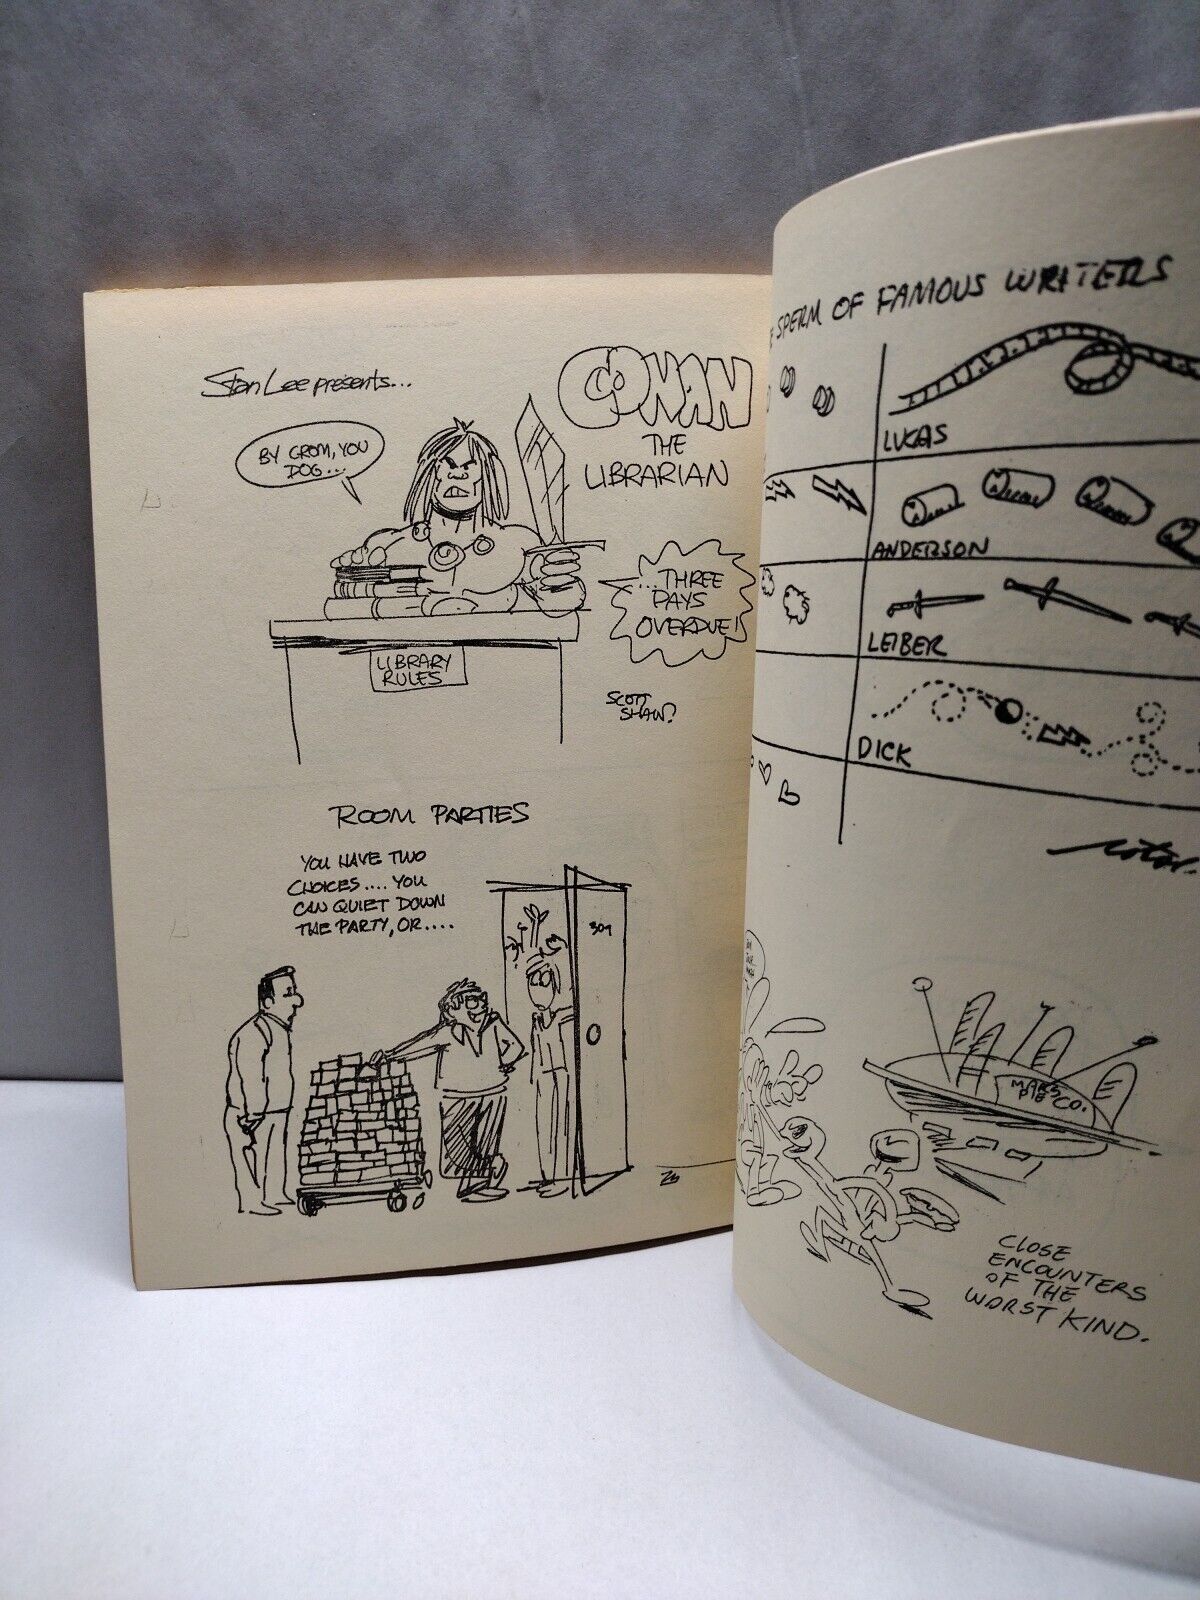 Stan Lee presents...
CONAN
THE
LIBRARIAN
BY CROM, YOU
DOG...
...THREE
DAYS
OVERDUE!
LIBRARY
RULES
SCOTT
SHAW!
ROOM PARTIES
YOU HAVE TWO
CHOICES.... YOU
CAN QUIET DOWN
THE PARTY, OR....
301
SPERM OF FAMOUS WRITERS
LUCAS
ANDERSON
LEIBER
DICK
MARS
PIE CO.
CLOSE
ENCOUNTERS
OF THE
WORST KIND.